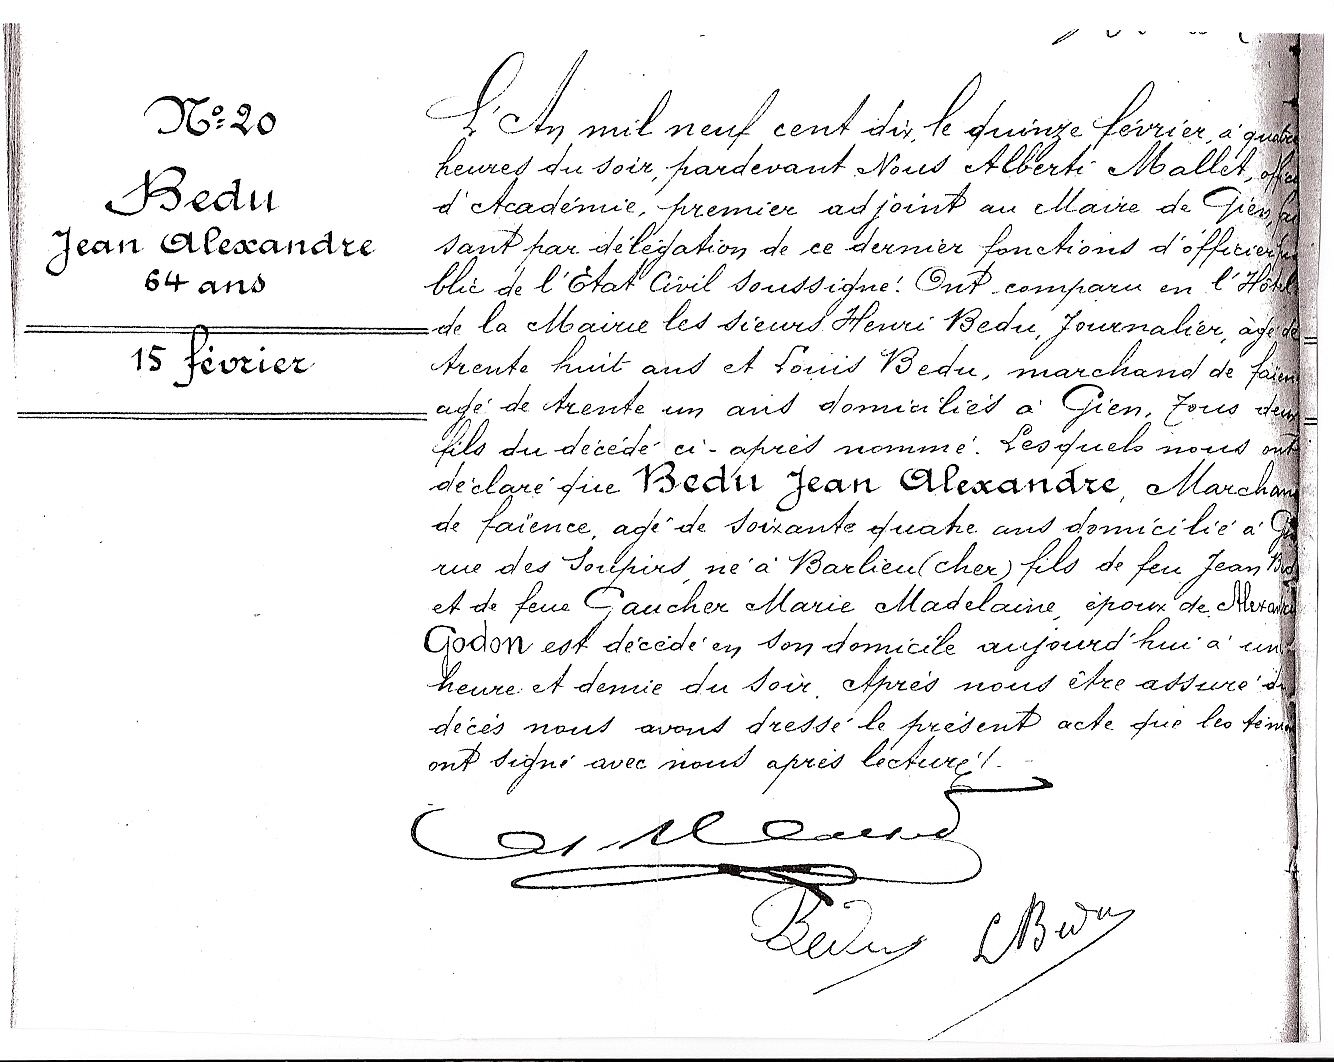 N° 20
Bedu
Jean Alexandre
64 ans
15 février
L'An mil neuf cent dix, le quinze février, à quatre
heures du soir, pardevant Nous Albert Mallet, offici
d'Académie, premier adjoint au Maire de Gien, fai
sant par délégation de ce dernier fonctions d'officier pu
blic de l'État Civil soussigné. Ont comparu en l'Hôtel
de la Mairie les sieurs Henri Bedu, Journalier, âgé de
trente huit ans et Louis Bedu, marchand de faïen
agé de trente un ans domiciliés à Gien, tous deux
fils du décédé ci-après nommé. Lesquels nous ont
déclaré que Bedu Jean Alexandre, Marchan
de faïence, agé de soixante quatre ans domicilié à Gi
rue des Soupirs, né à Barlieu (cher) fils de feu Jean Bed
et de feue Gaucher Marie Madelaine, époux de Alexandri
Godon est décédé en son domicile aujourd'hui à un
heure et demie du soir. Après nous être assuré du
décès nous avons dressé le présent acte que les témo
ont signé avec nous après lecture.
Bedu
L Bedu